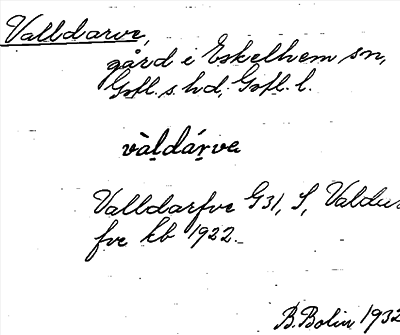 Valldarve,
gård i Eskelhem sn,
Gotl. s. hd, Gotl. l.
vàldárve
Valldarfve G31, S, Valdur
fve kb 1922.
B. Bolin 1932